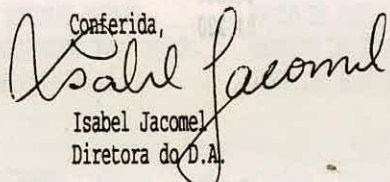 Conferida,
Isabel Jacomel
Isabel Jacomel
Diretora do D.A.